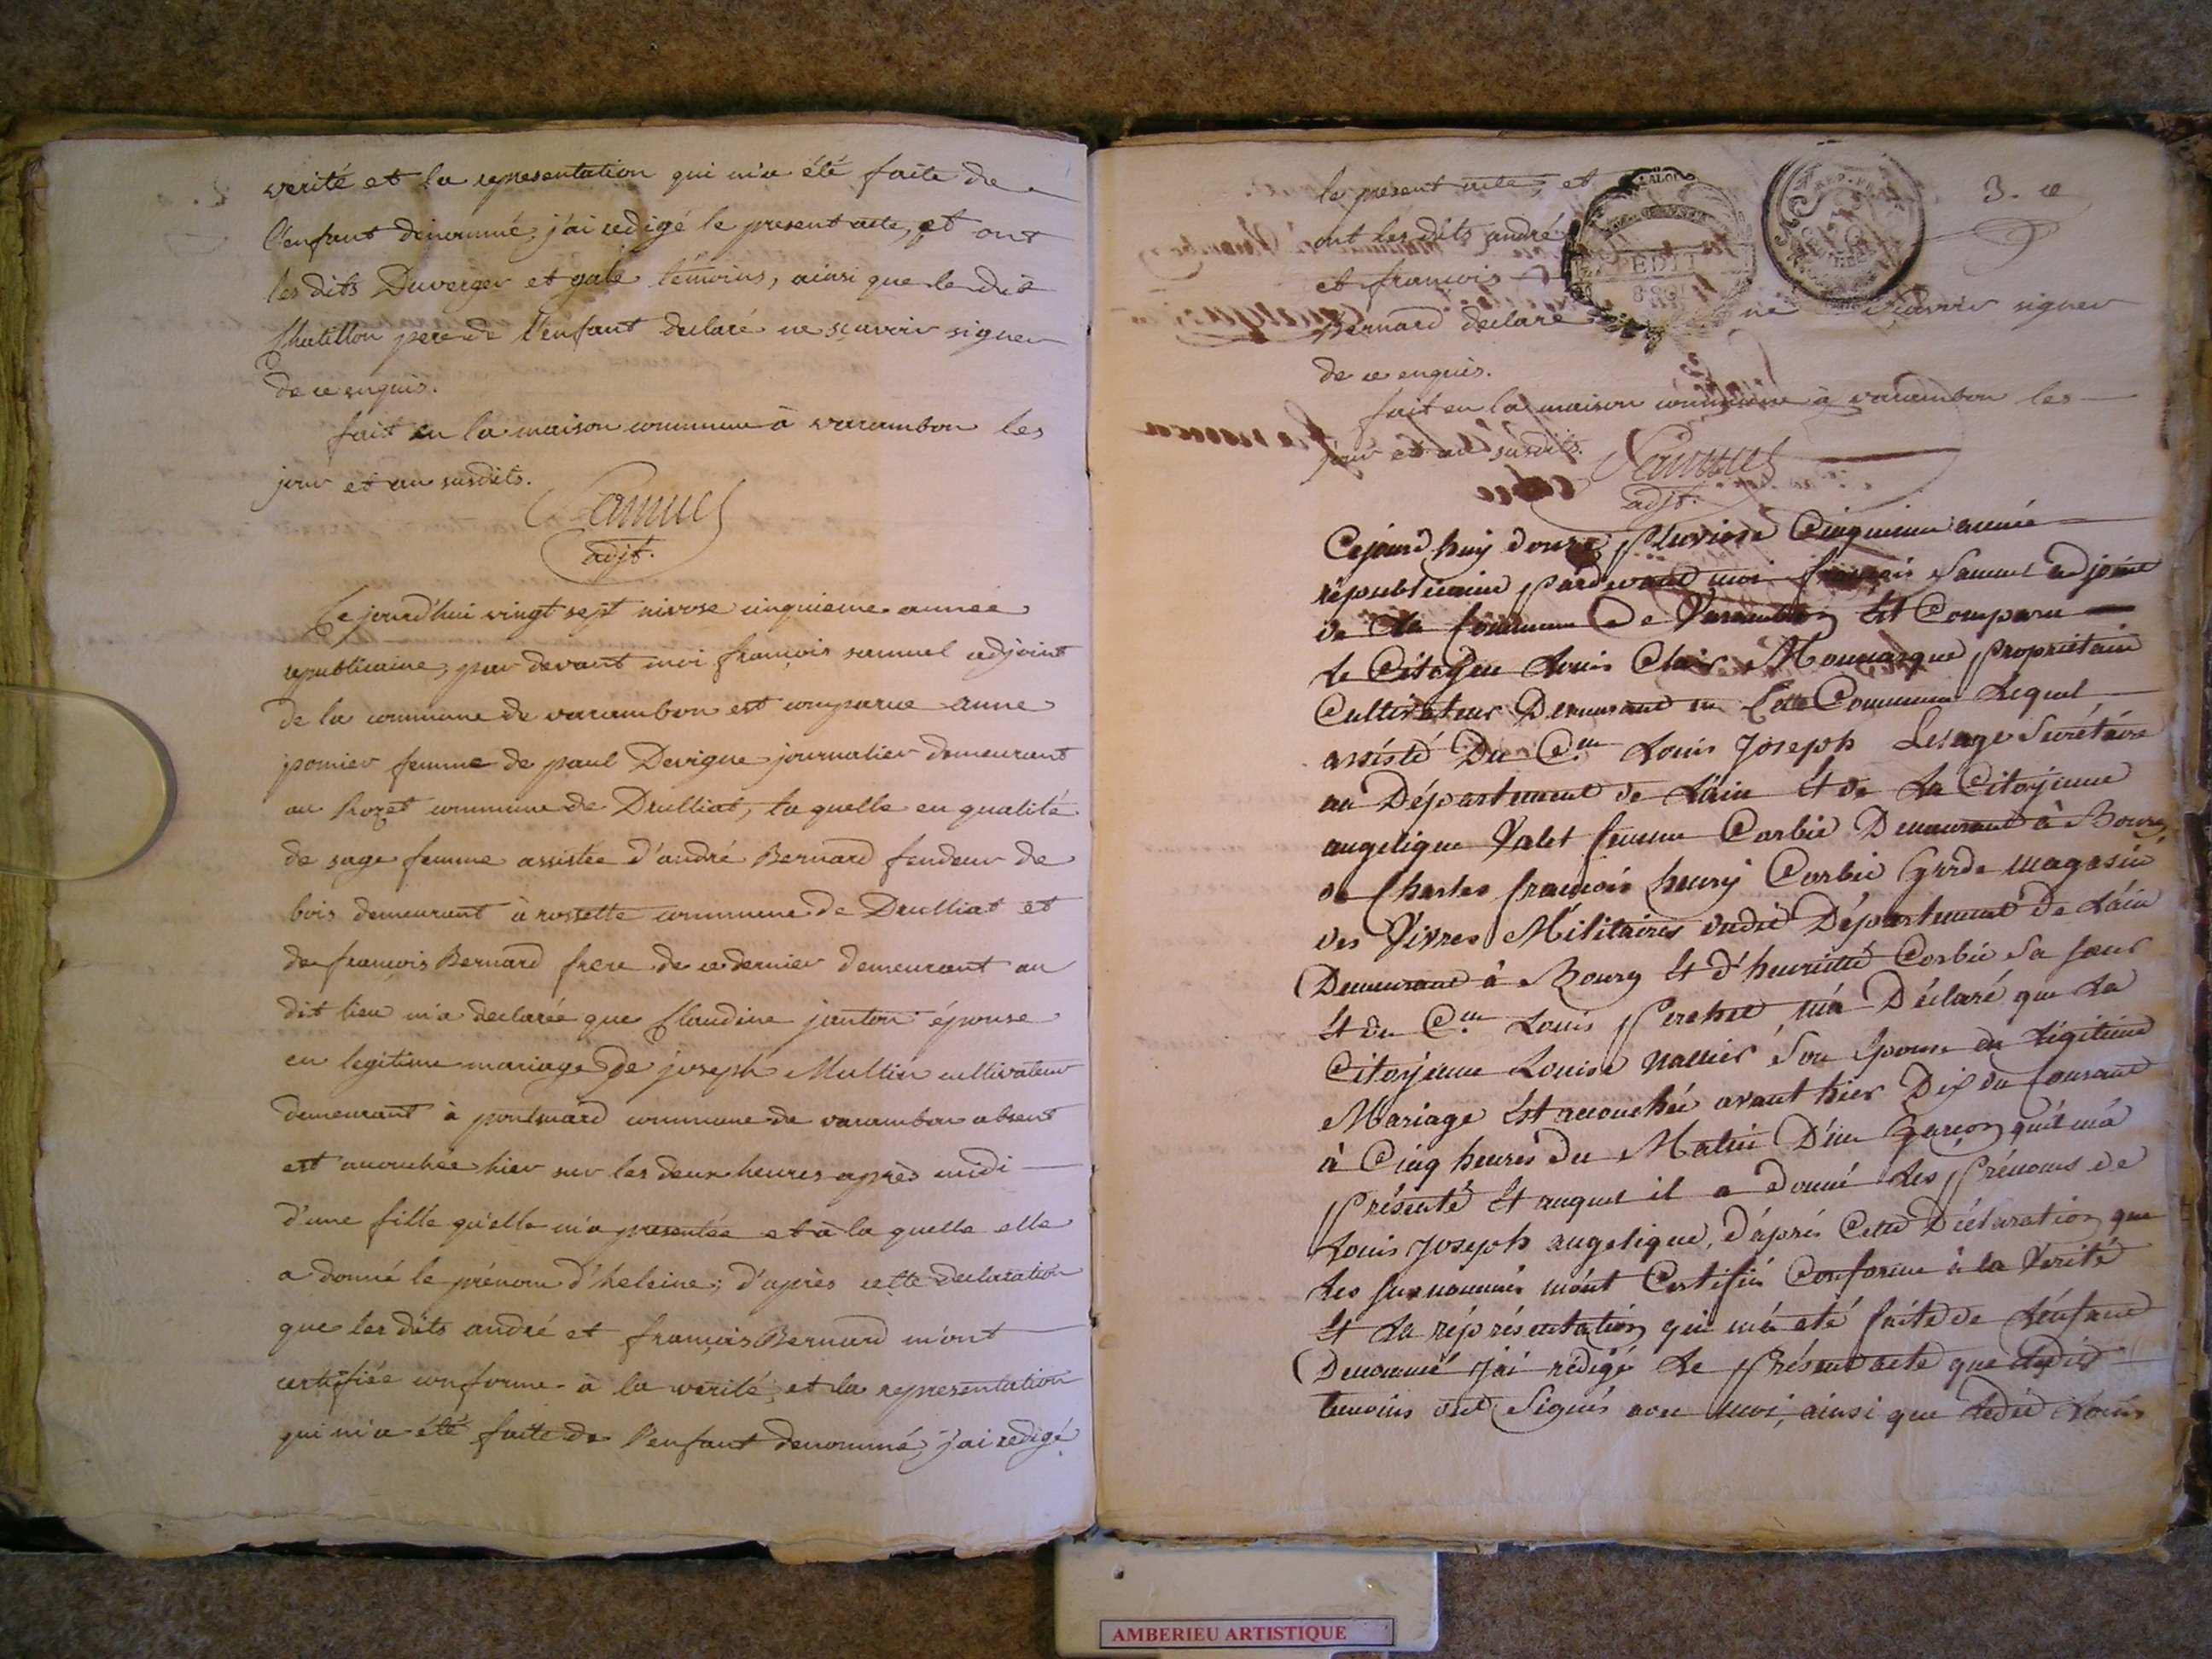 verité et la representation qui m'a été faite de
l'enfant denommé, j'ai redigé le present acte, et ont
les dits Duverger et galé témoins, ainsi que le dit
Chatillon pere de l'enfant declaré ne sçavoir signer
de ce enquis.
fait en la maison commune à varambon les
jour et an susdits.
Samuel
adjt.
Ce jourd'hui vingt sept nivose cinquieme année
republicaine, par devant moi françois samuel adjoint
de la commune de varambon est comparue anne
pomier femme de paul Devigne journalier demeurant
au Rozet commune de Druilliat, la quelle en qualité
de sage femme assistée d'andré Bernard fendeur de
bois demeurant à rossette commune de Druilliat et
de françois Bernard frere de ce dernier demeurant au
dit lieu m'a declarée que Claudine janton épouse
en legitime mariage de joseph Multin cultivateur
demeurant à commune de varambon absent
est accouchée hier sur les deux heures après midi
d'une fille qu'elle m'a presentée et à la quelle elle
a donné le prénom d'heleine; d'après cette declaration
que les dits andré et françois Bernard m'ont
certifiée conforme à la verité, et la representation
qui m'a été faite de l'enfant denommé, j'ai redigé
3. e
le present acte, et
ont les dits andré
et françois
Bernard declaré ne sçavoir signer
de ce enquis.
fait en la maison commune à varambon les
jour et an susdits.
Samuel
adjt.
Cejourd'huy douze pluviose Cinquieme année
républicaine pardevant moi françois Samuel adjoint
de la Commune de Varambon Est Comparu
Le Citoyen Louis Clair Monnarque propriétaire
Cultivateur Demeurant en Cette Commune Lequel
assisté Du C.en Louis Joseph Lesage Secrétaire
au Département de Lain Et de La Citoyenne
angelique Valet femme Corbie Demeurant à Bourg,
de Charles françois henry Corbie Garde magasin
des Vivres Militaires dudit Département de Lain
Demeurant à Bourg Et d'henriette Corbie Sa soeur
Et du C.en Louis m'a Déclaré que La
Citoyenne Louise Son Epouse en légitime
Mariage Est accouchée avant hier Dix du Courant
à Cinq heures du Matin D'un Garçon qu'il m'a
Présenté Et auquel il a Donné Les Prénoms de
Louis Joseph angelique, d'après Cette Déclaration que
Les susnommés m'ont Certifié Conforme à la Verité
Et La réprésentation qui m'a eté faite de L'enfant
Denommé J'ai rédigé Le Présent acte que
temoins ont Signés avec moi, ainsi que Ledit Louis
AMBERIEU ARTISTIQUE